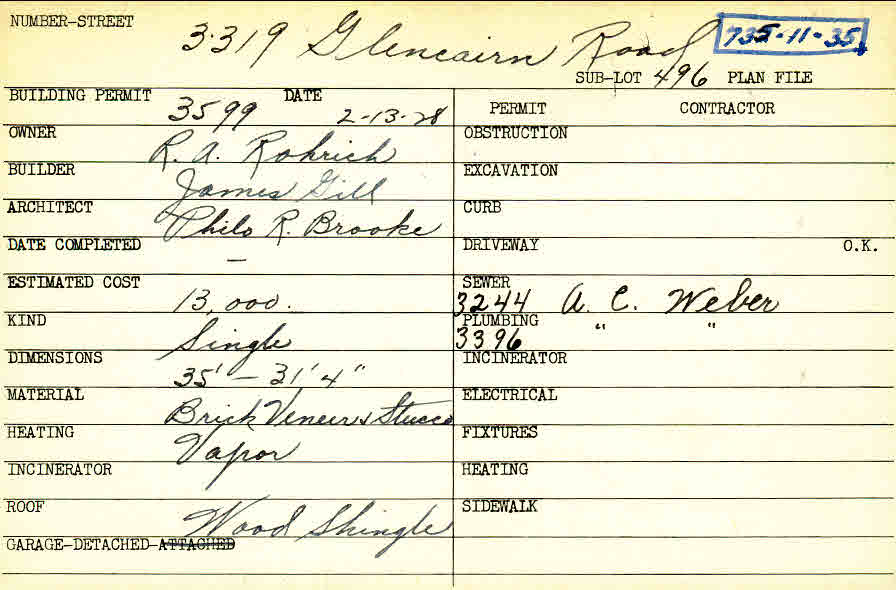 NUMBER-STREET 3319 Glencairn Road 735-11-35
SUB-LOT 496 PLAN FILE
BUILDING PERMIT 3599 DATE 2-13-28
OWNER R. A. Rohrich
BUILDER James Gill
ARCHITECT Philo R. Brooke
DATE COMPLETED —
ESTIMATED COST 13,000.
KIND Single
DIMENSIONS 35' — 31' 4"
MATERIAL Brick Veneer & Stucco
HEATING Vapor
INCINERATOR
ROOF Wood Shingle
GARAGE-DETACHED-ATTACHED
PERMIT CONTRACTOR
OBSTRUCTION
EXCAVATION
CURB
DRIVEWAY O.K.
SEWER 3244 A. C. Weber
PLUMBING 3396 " "
INCINERATOR
ELECTRICAL
FIXTURES
HEATING
SIDEWALK